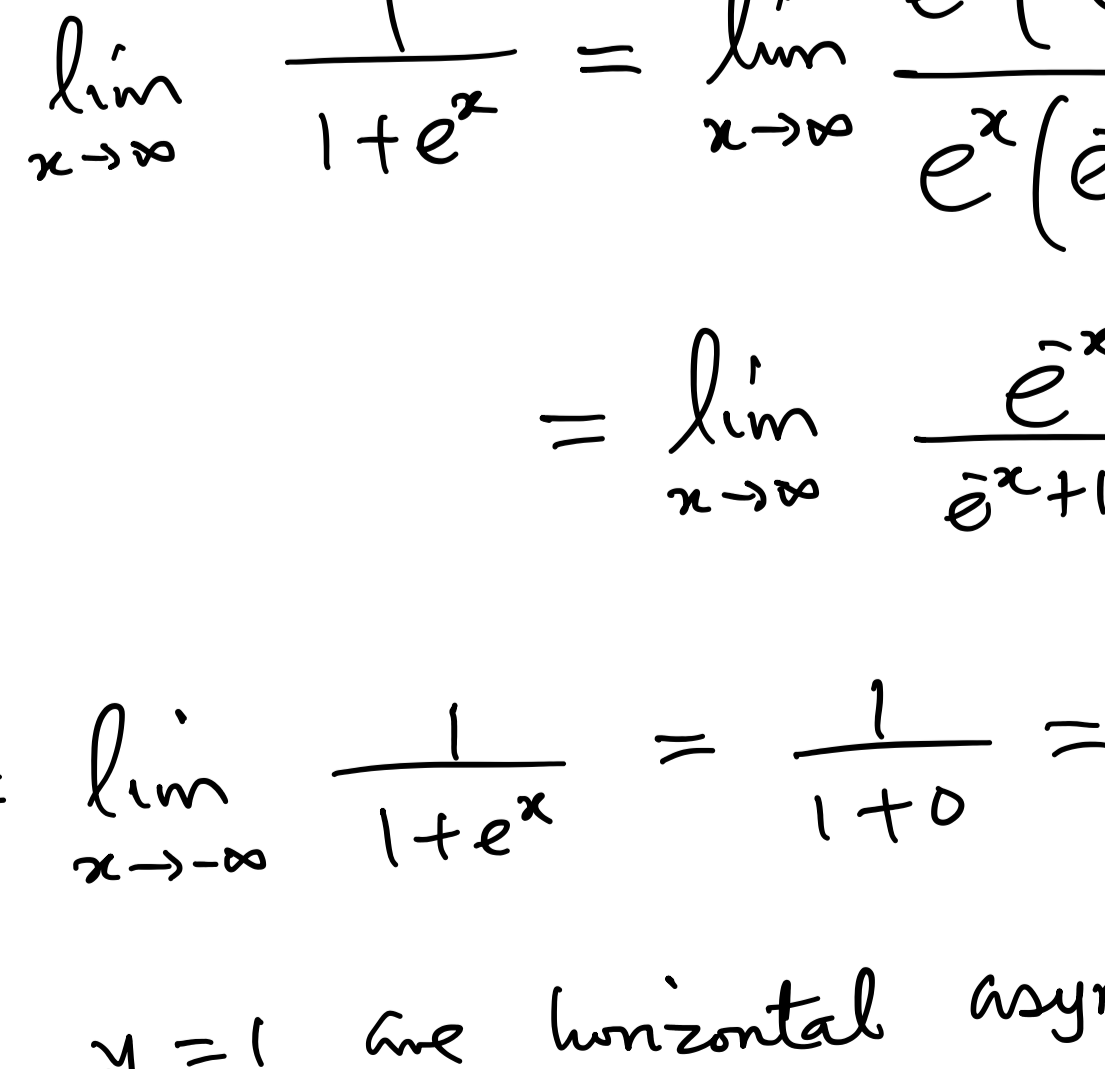 lim x→∞ 1/(1+e^x) = lim x→∞ e^x(e
= lim x→∞ e^-x/(e^-x+1
lim x→-∞ 1/(1+e^x) = 1/(1+0) =
y=1 are horizontal asy